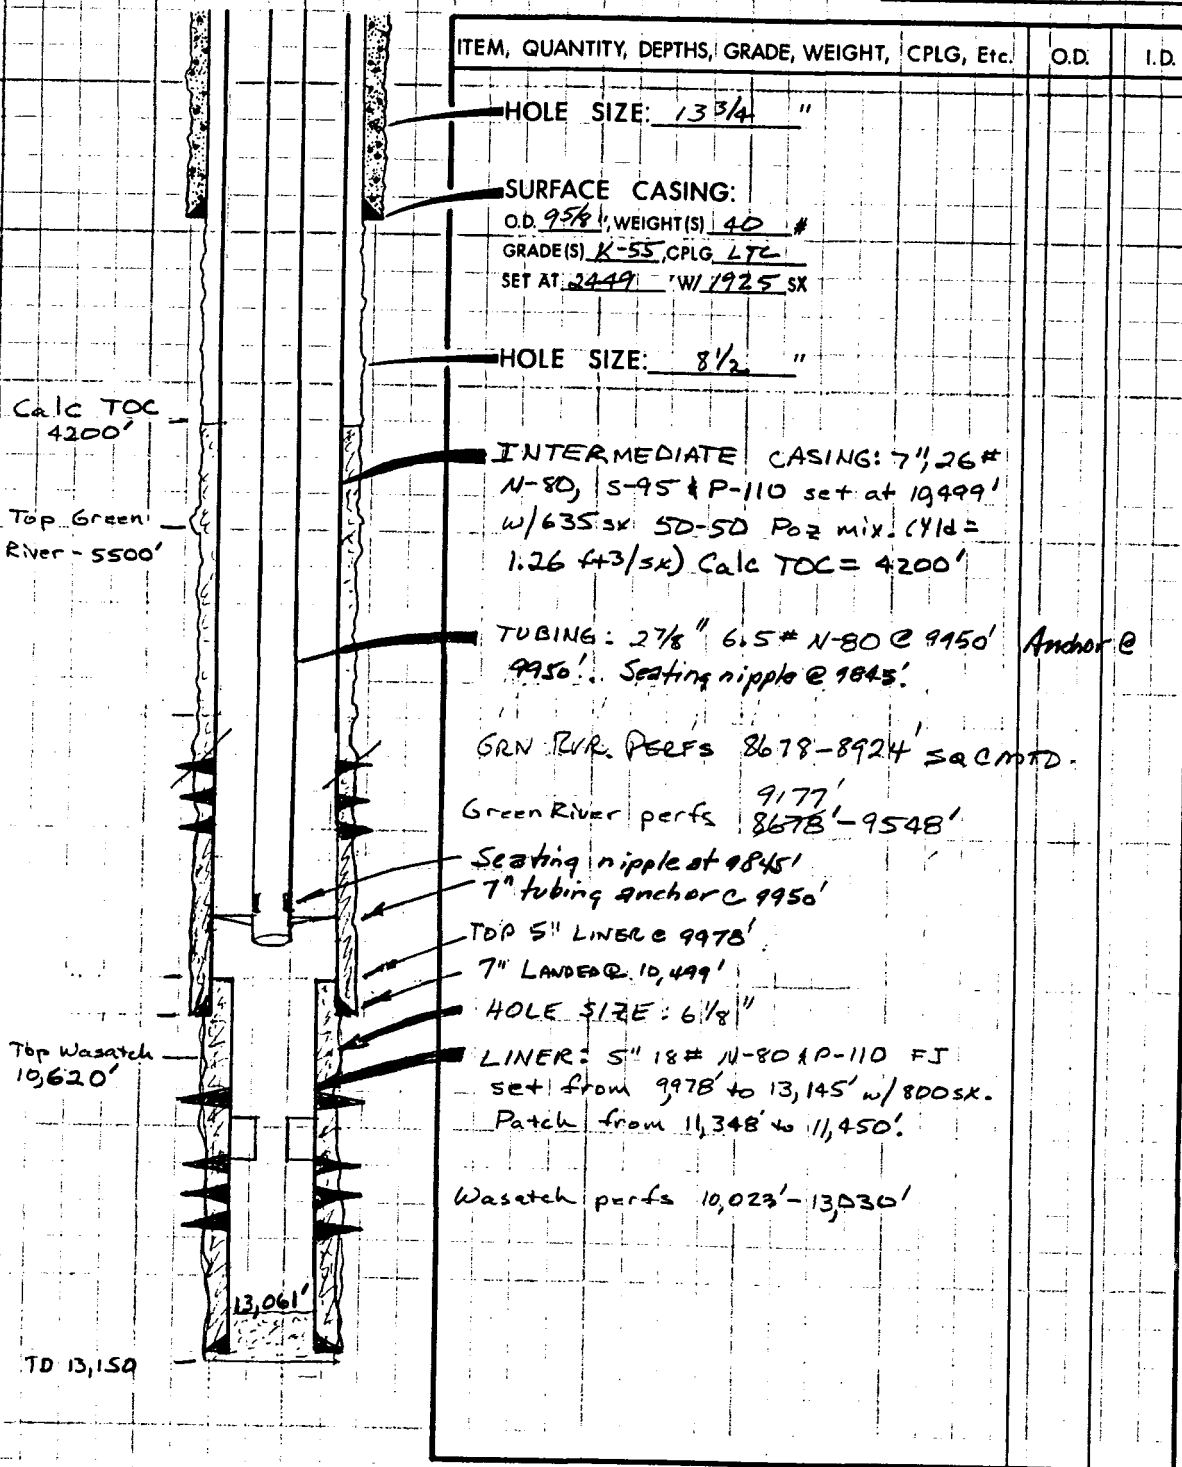 ITEM, QUANTITY, DEPTHS, GRADE, WEIGHT, CPLG, Etc. O.D. I.D.
HOLE SIZE: 13 3/4 "
SURFACE CASING:
O.D. 9 5/8", WEIGHT(S) 40 #
GRADE(S) K-55, CPLG LTC
SET AT 2449 'W/ 1925 SX
HOLE SIZE: 8 1/2 "
Calc TOC
4200'
INTERMEDIATE CASING: 7", 26#
N-80, S-95 & P-110 set at 10,499'
w/635 sx 50-50 Poz mix. (Yld =
1.26 ft3/sx) Calc TOC = 4200'
Top Green
River - 5500'
TUBING: 2 7/8" 6.5# N-80 @ 9950' Anchor @
9950'. Seating nipple @ 9845'.
GRN RVR. PERFS 8678-8924' SQ CMTD.
9177'
Green River perfs 8678'-9548'
Seating nipple at 9845'
7" tubing anchor @ 9950'
TOP 5" LINER @ 9978'
7" LANDED @ 10,499'
HOLE SIZE: 6 1/8"
Top Wasatch
10,620'
LINER: 5" 18# N-80 & P-110 FJ
set from 9,978' to 13,145' w/800 sx.
Patch from 11,348' to 11,450'.
Wasatch perfs 10,023'-13,030'
13,061'
TD 13,150